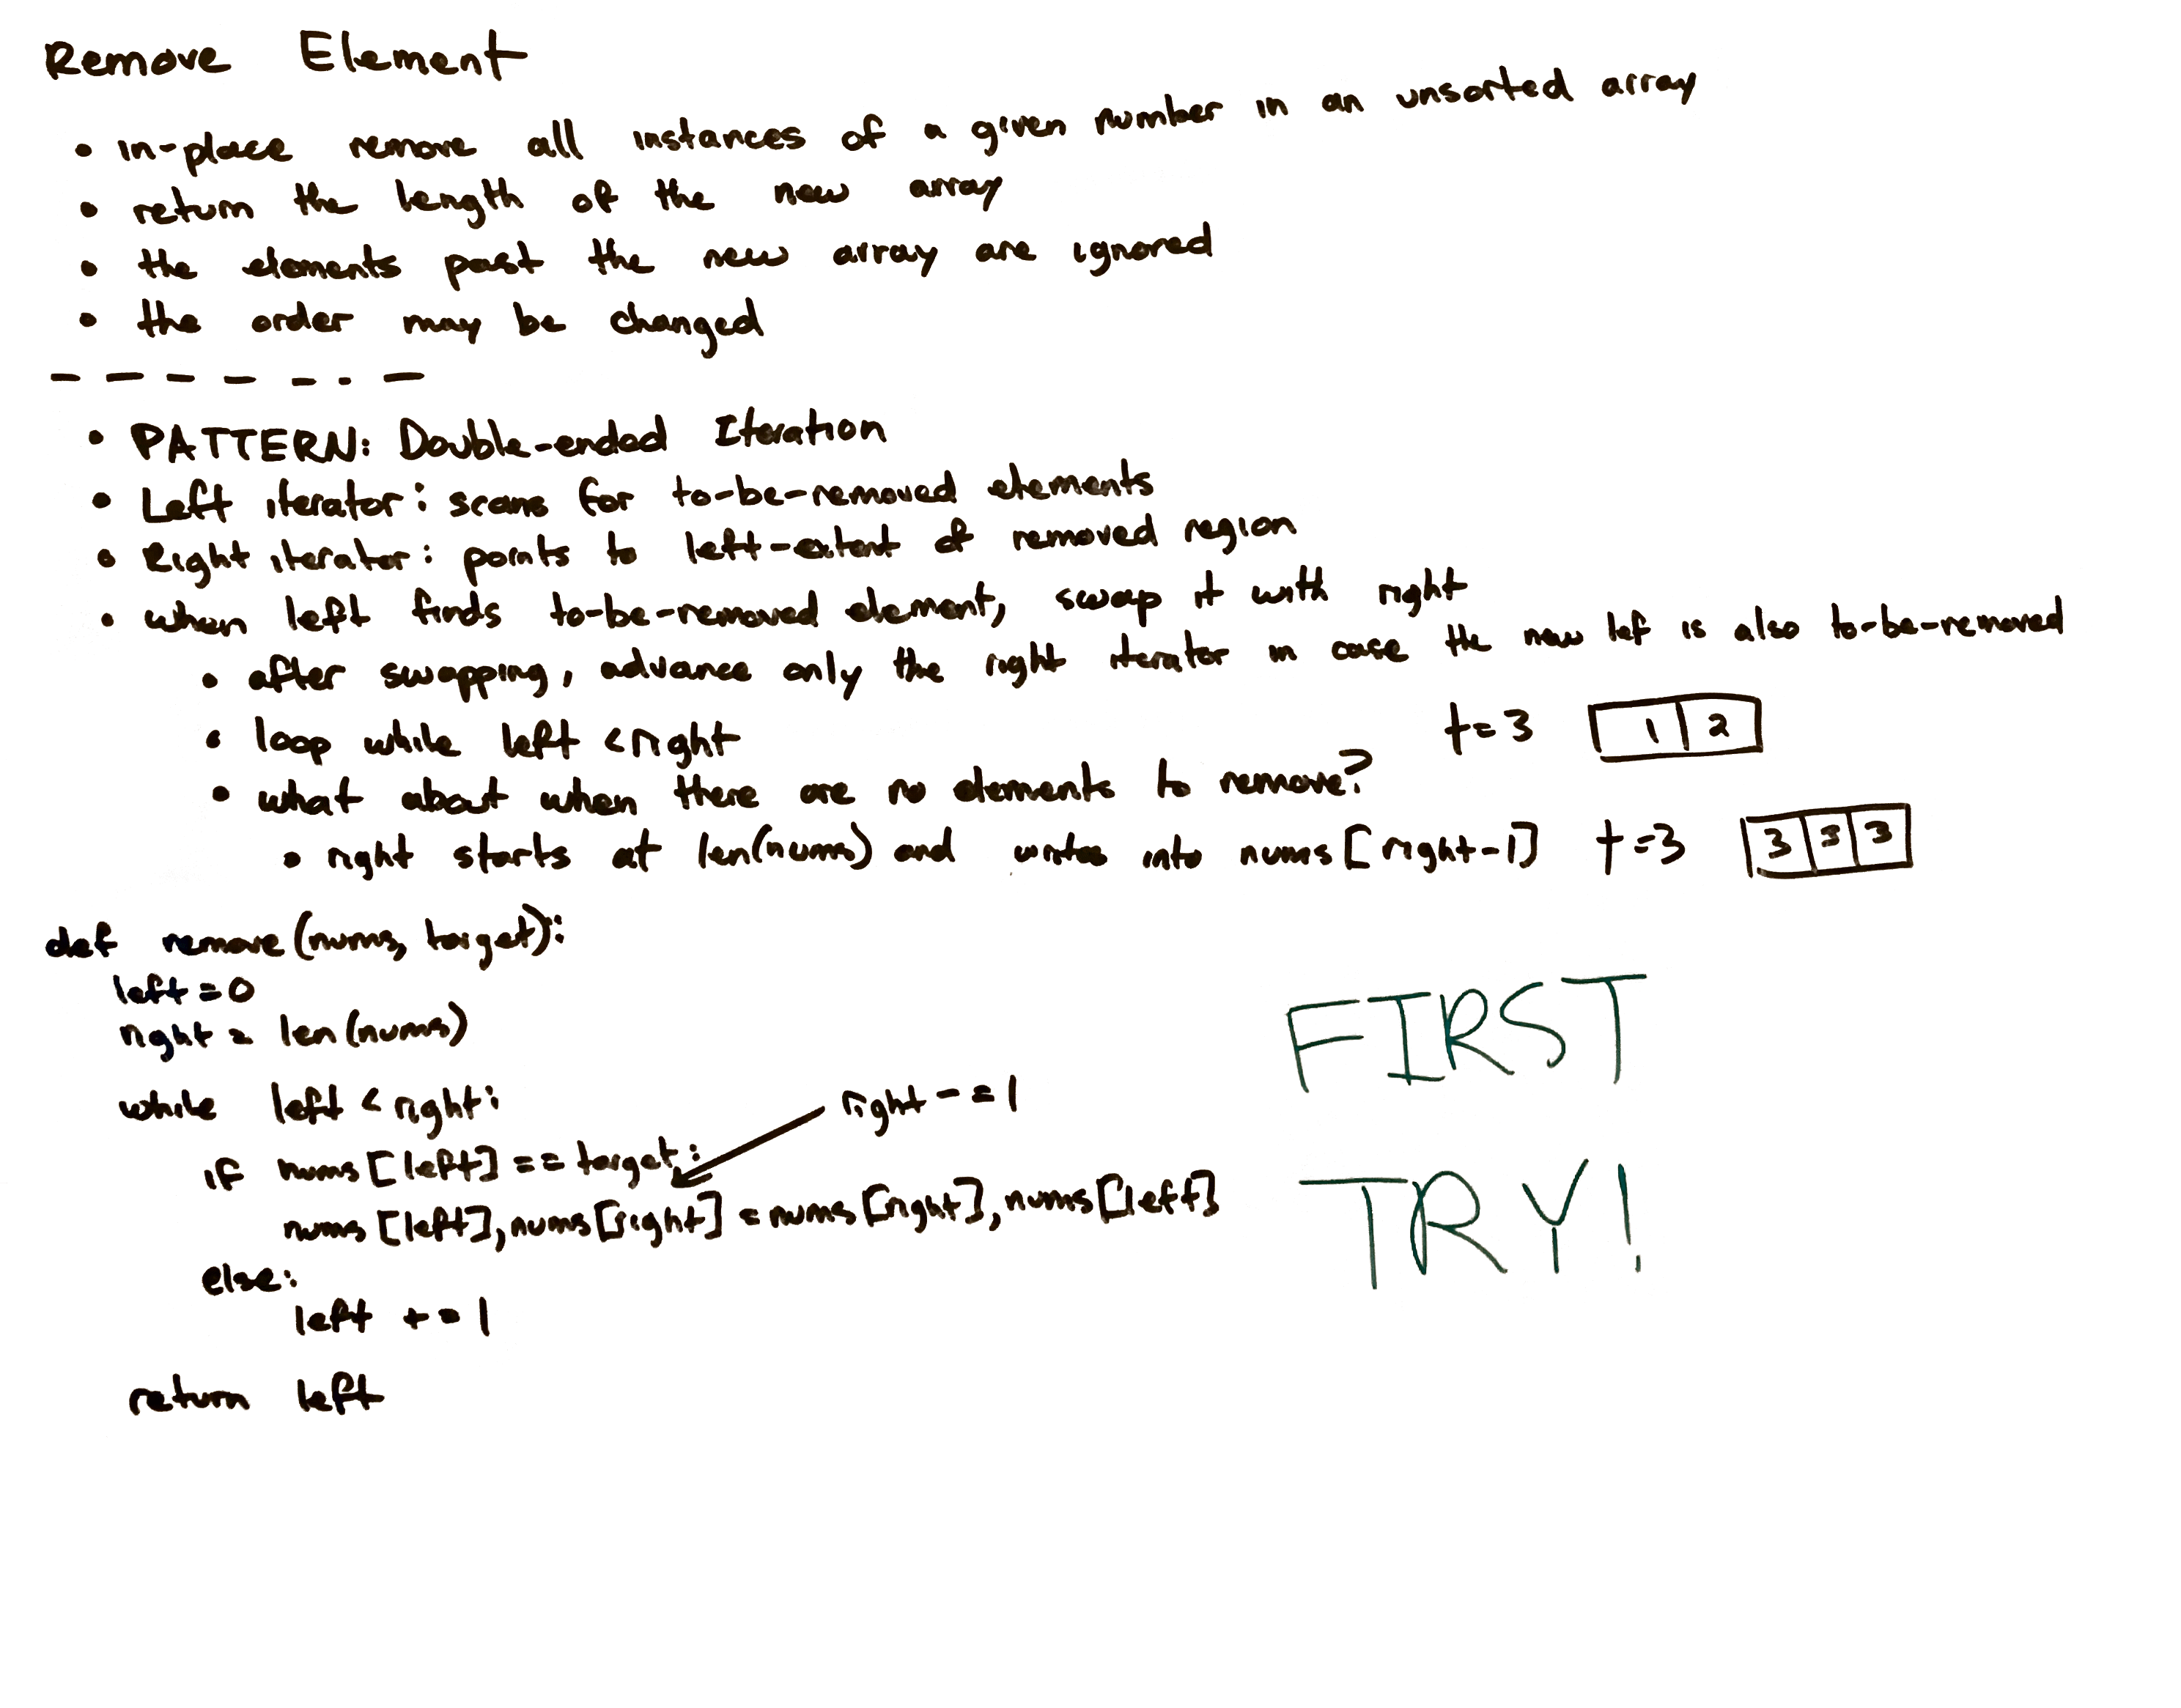 Remove Element
• in-place remove all instances of a given number in an unsorted array
• return the length of the new array
• the elements past the new array are ignored
• the order may be changed
- - - - - - -
• PATTERN: Double-ended Iteration
• Left iterator: scans for to-be-removed elements
• Right iterator: points to left-extent of removed region
• when left finds to-be-removed element, swap it with right
• after swapping, advance only the right iterator in case the new lef is also to-be-removed
• loop while left < right
t=3 1 2
• what about when there are no elements to remove?
• right starts at len(nums) and writes into nums[right-1]
t=3 3 3 3
def remove(nums, target):
left = 0
right = len(nums)
while left < right:
right -= 1
if nums[left] == target:
nums[left], nums[right] = nums[right], nums[left]
else:
left += 1
return left
FIRST
TRY!